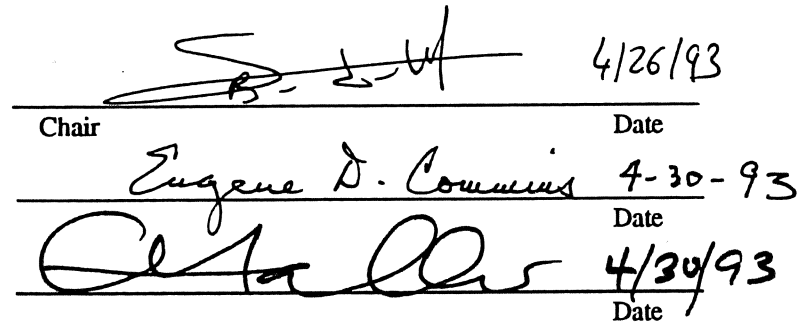 4/26/93
Chair Date
Eugene D. Commins 4-30-93
Date
4/30/93
Date